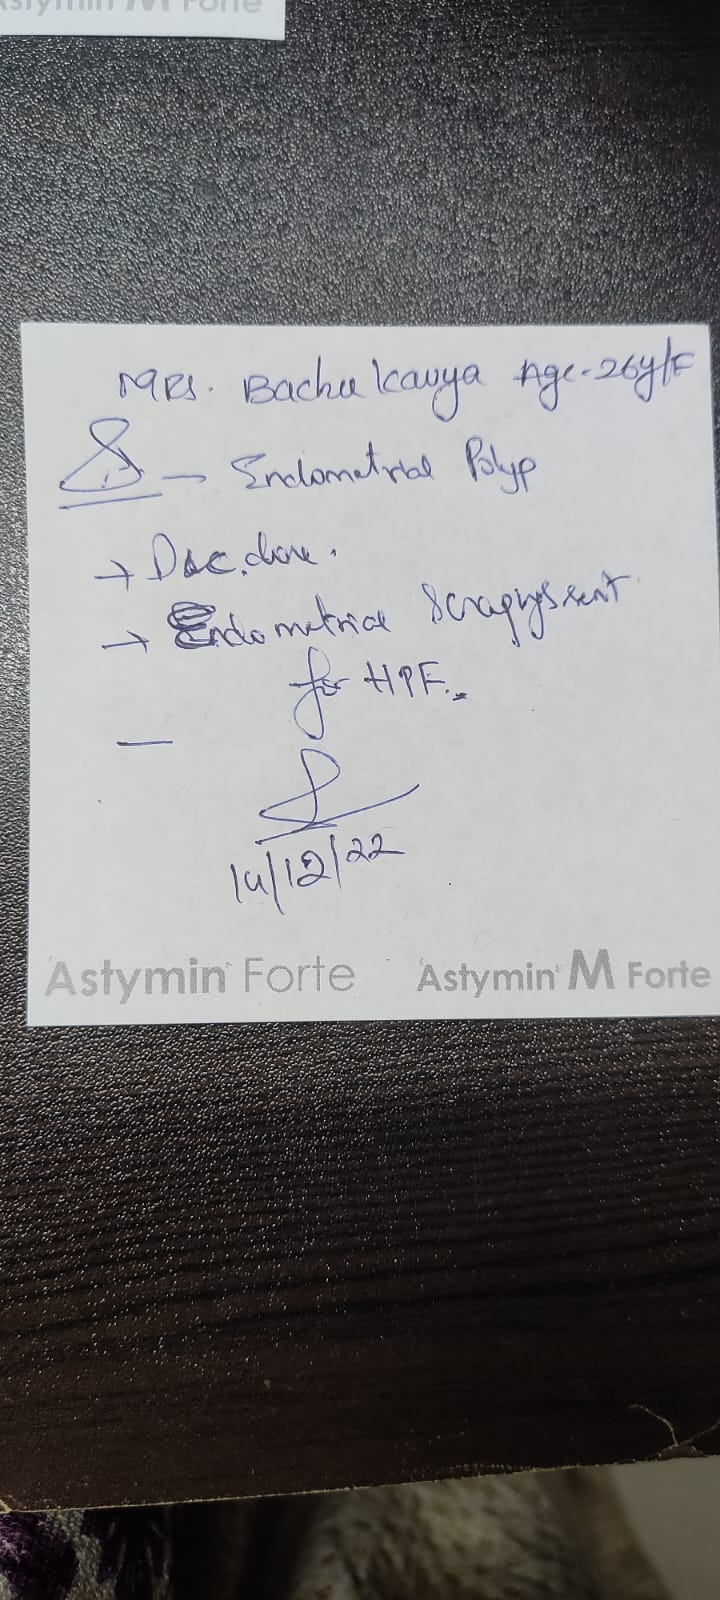 Astymin M Forte
MRS. Bachu Kavya Age-26y/F
Endometrial Polyp
→ D&C done.
→ Endometrial Scrapings sent
for HPE.
14/12/22
Astymin Forte Astymin M Forte